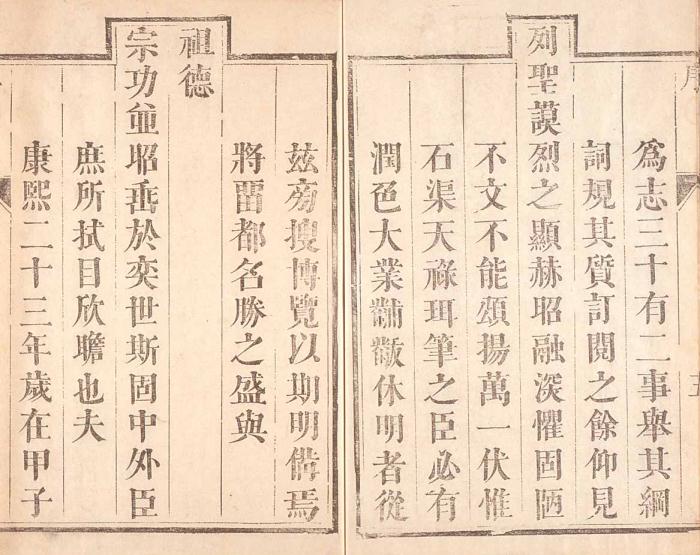 為志三十有二事舉其綱
詞規其質訂閱之餘仰見
列聖謨烈之顯赫昭融深懼固陋
不文不能頌揚萬一伏惟
石渠天祿珥筆之臣必有
潤色大業黼黻休明者從
茲旁搜博覽以期明備焉
將畱都名勝之盛與
祖德
宗功並昭垂於奕世斯固中外臣
庶所拭目欣瞻也夫
康熙二十三年歲在甲子